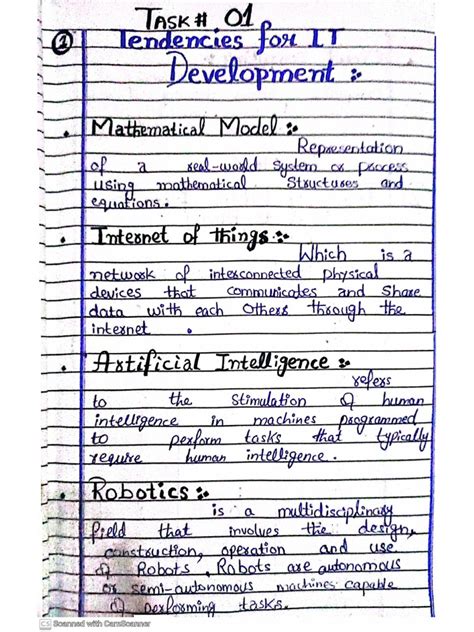 TASK # 01
① Tendencies for IT
Development :-
• Mathematical Model :-
Representation
of a real-world system or process
using mathematical structures and
equations.
• Internet of things :-
Which is a
network of interconnected physical
devices that communicates and share
data with each others through the
internet .
• Artificial Intelligence :-
refers
to the Stimulation of human
intelligence in machines programmed
to perform tasks that typically
require human intelligence .
• Robotics :-
is a multidisciplinary
field that involves the design,
construction, operation and use
of Robots . Robots are autonomous
or semi-autonomous machines capable
of performing tasks.
CS Scanned with CamScanner